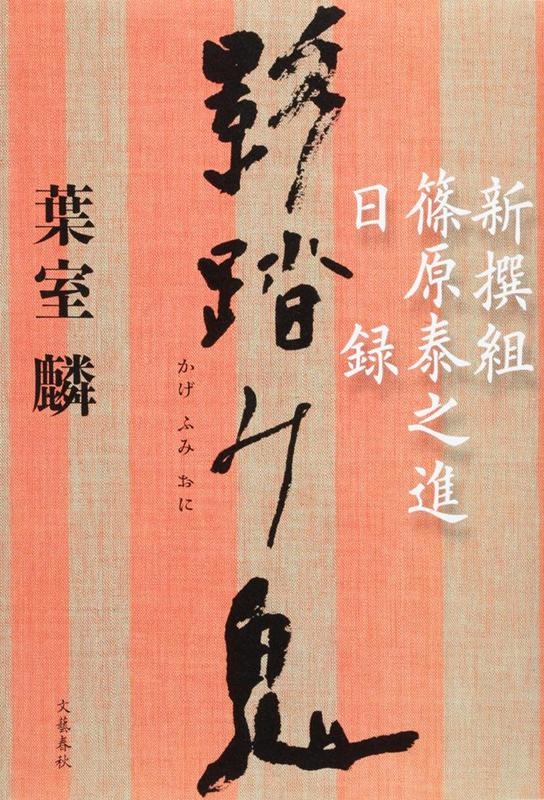 新撰組
篠原泰之進
日録
影踏み鬼
かげふみおに
葉室麟
文藝春秋